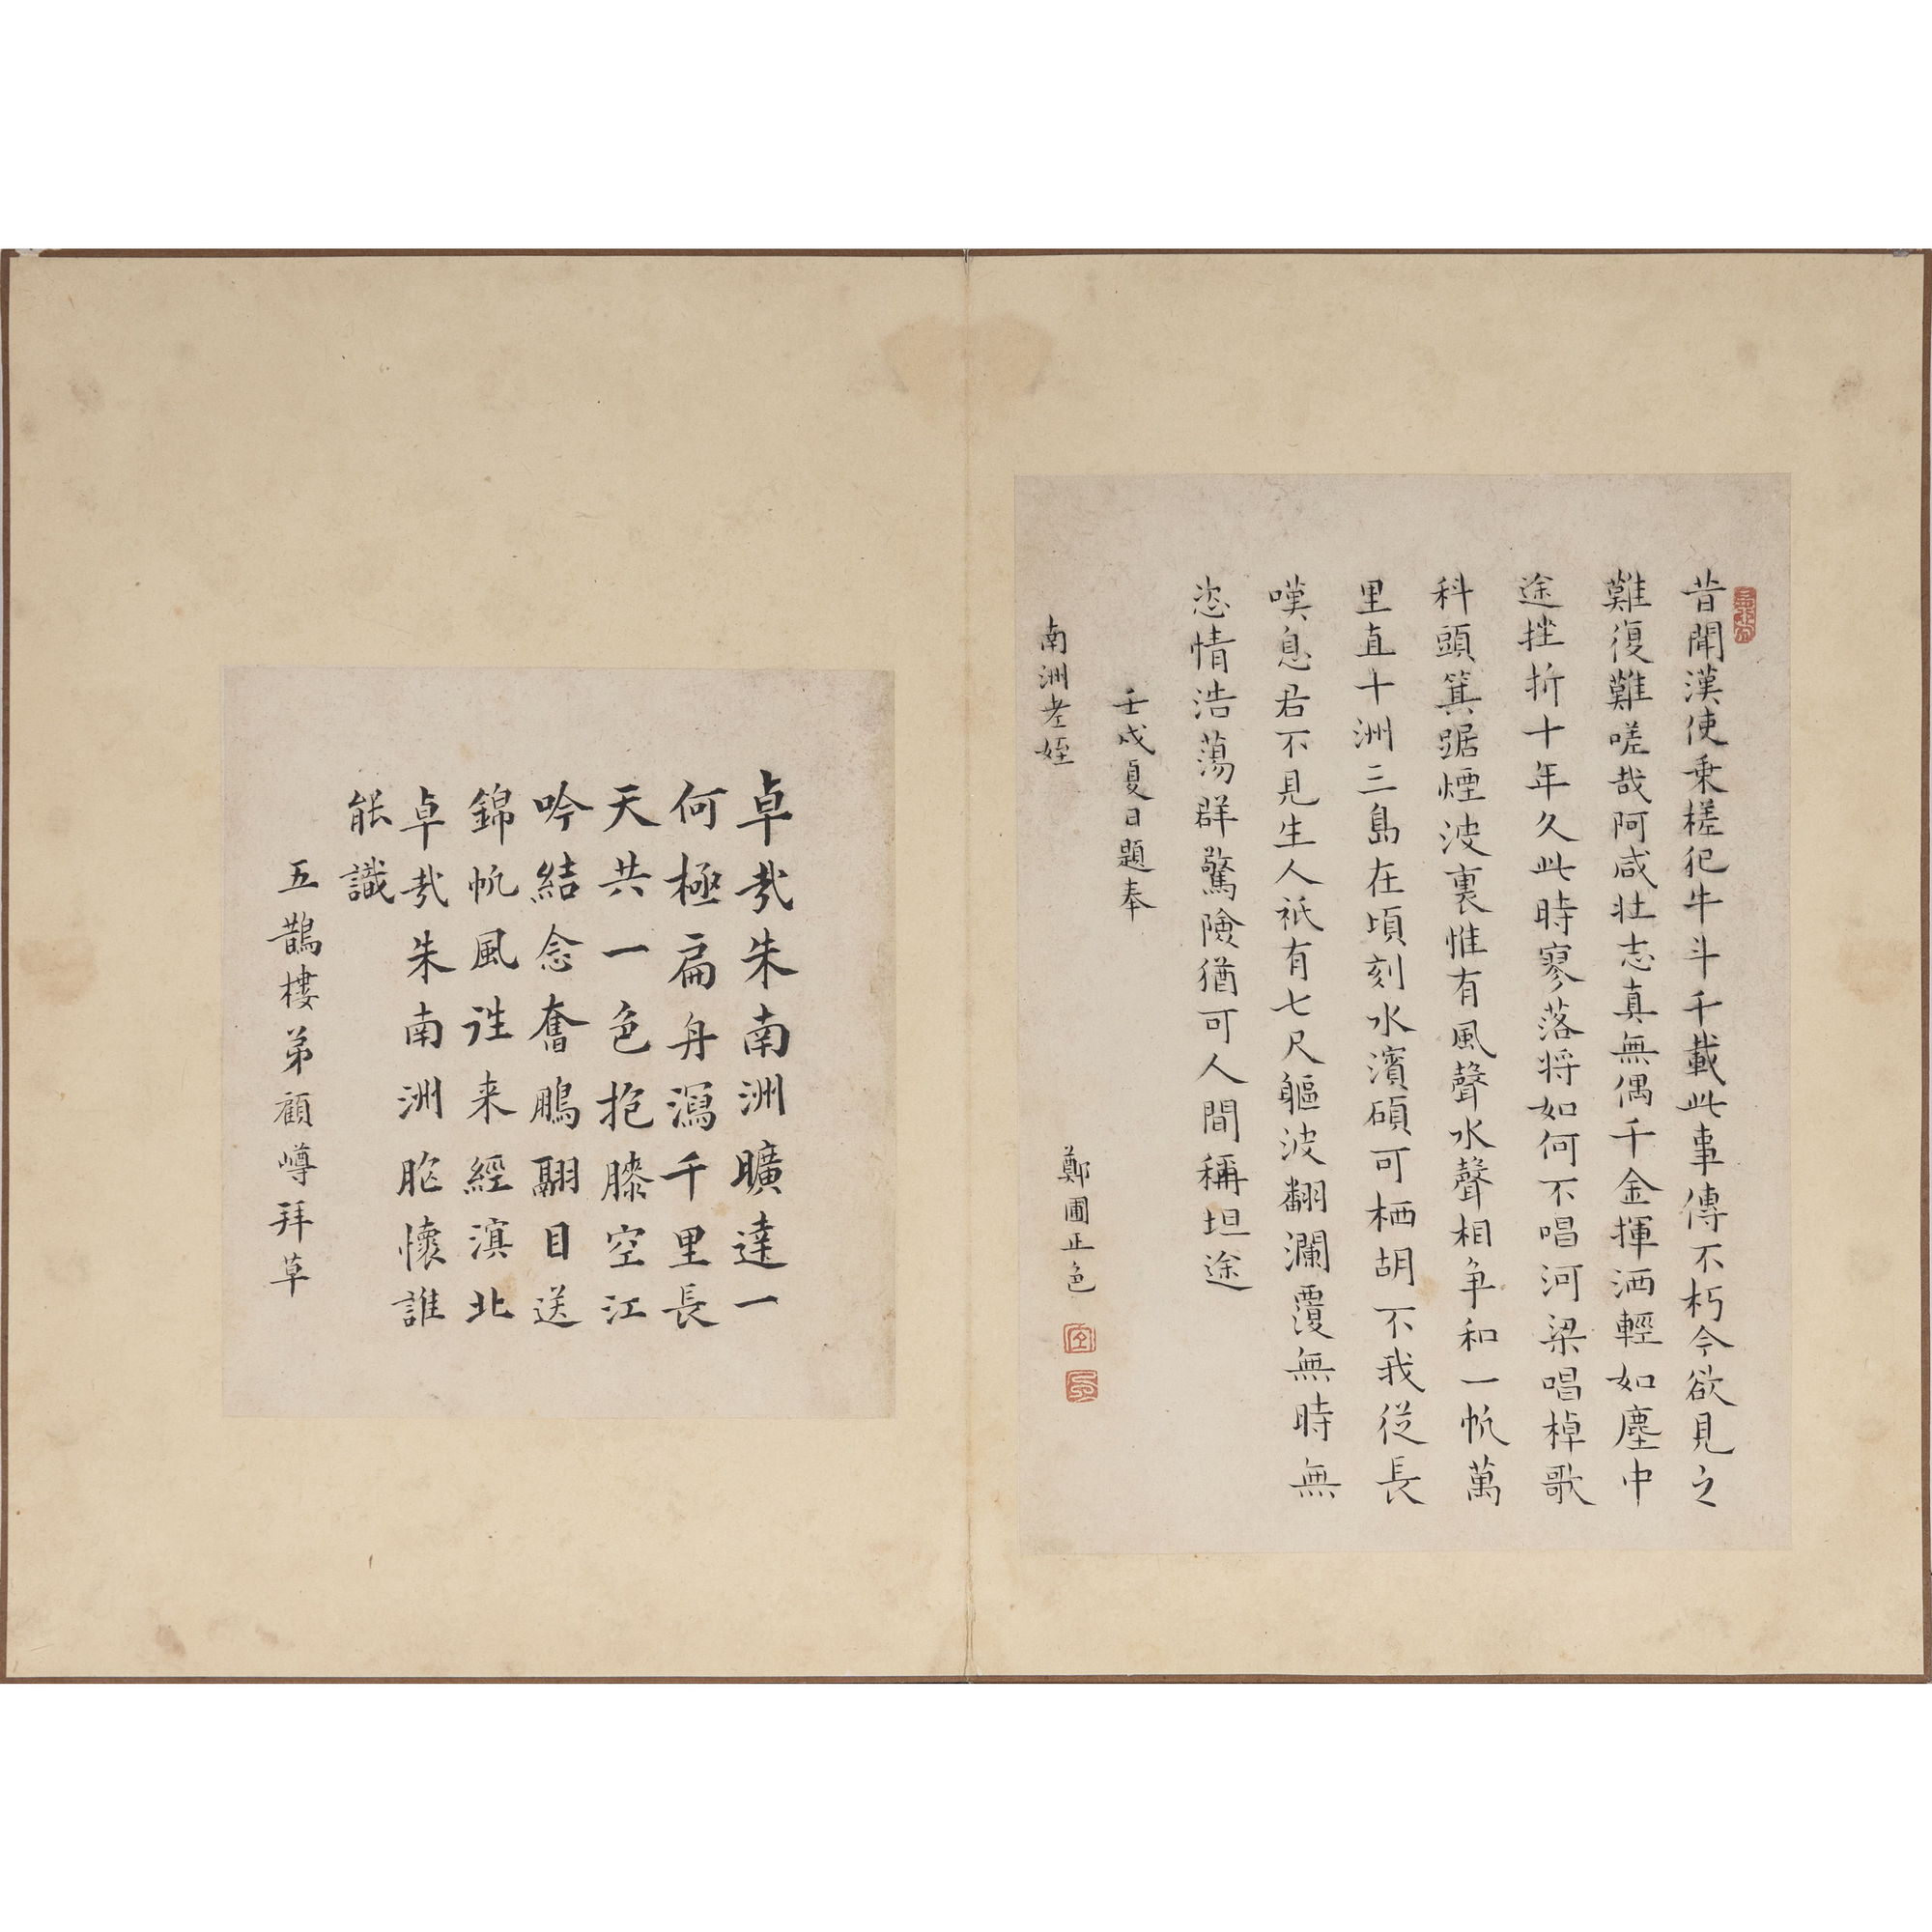 昔聞漢使乗槎犯牛斗千載此事傳不朽今欲見之
難復難嗟哉阿咸壮志真無偶千金揮洒輕如塵中
途挫折十年久此時寥落将如何不唱河梁唱棹歌
科頭箕踞煙波裏惟有風聲水聲相争和一帆萬
里直十洲三島在頃刻水濱碩可栖胡不我従長
嘆息君不見生人祇有七尺軀波翻瀾覆無時無
恣情浩蕩群驚險猶可人間稱坦途
壬戌夏日題奉
南洲老姪
鄭圃正色
卓哉朱南洲曠達一
何極扁舟瀉千里長
天共一色抱膝空江
吟結念奮鵬翮目送
錦帆風往来經滇北
卓哉朱南洲胸懷誰
能識
五鵲樓弟顧嶟拜草